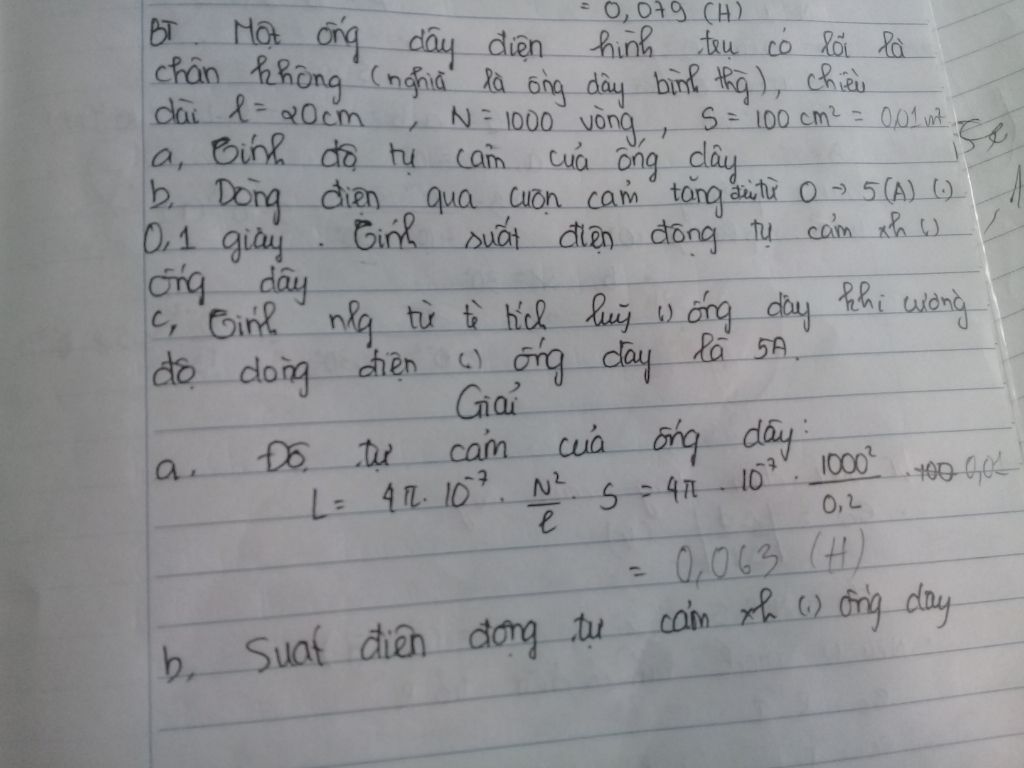 = 0,079 (H)
BT. Một ống dây điện hình trụ có lõi là
chân không (nghĩa là ống dây bình thg), chiều
dài l = 20cm , N = 1000 vòng, S = 100 cm² = 0,01 m²
a, Tính độ tự cảm của ống dây
b. Dòng điện qua cuộn cảm tăng đều từ 0 → 5(A) (.)
0,1 giây . Tính suất điện động tự cảm xh (.)
ống dây
c, Tính nlg từ tr tích luỹ (.) ống dây khi cường
độ dòng điện (.) ống dây là 5A.
Giải
a. Độ tự cảm của ống dây:
L = 4π. 10⁻⁷ . N²/l . S = 4π . 10⁻⁷ . 1000²/0,2 . 100 0,01
= 0,063 (H)
b, Suất điện động tự cảm xh (.) ống dây